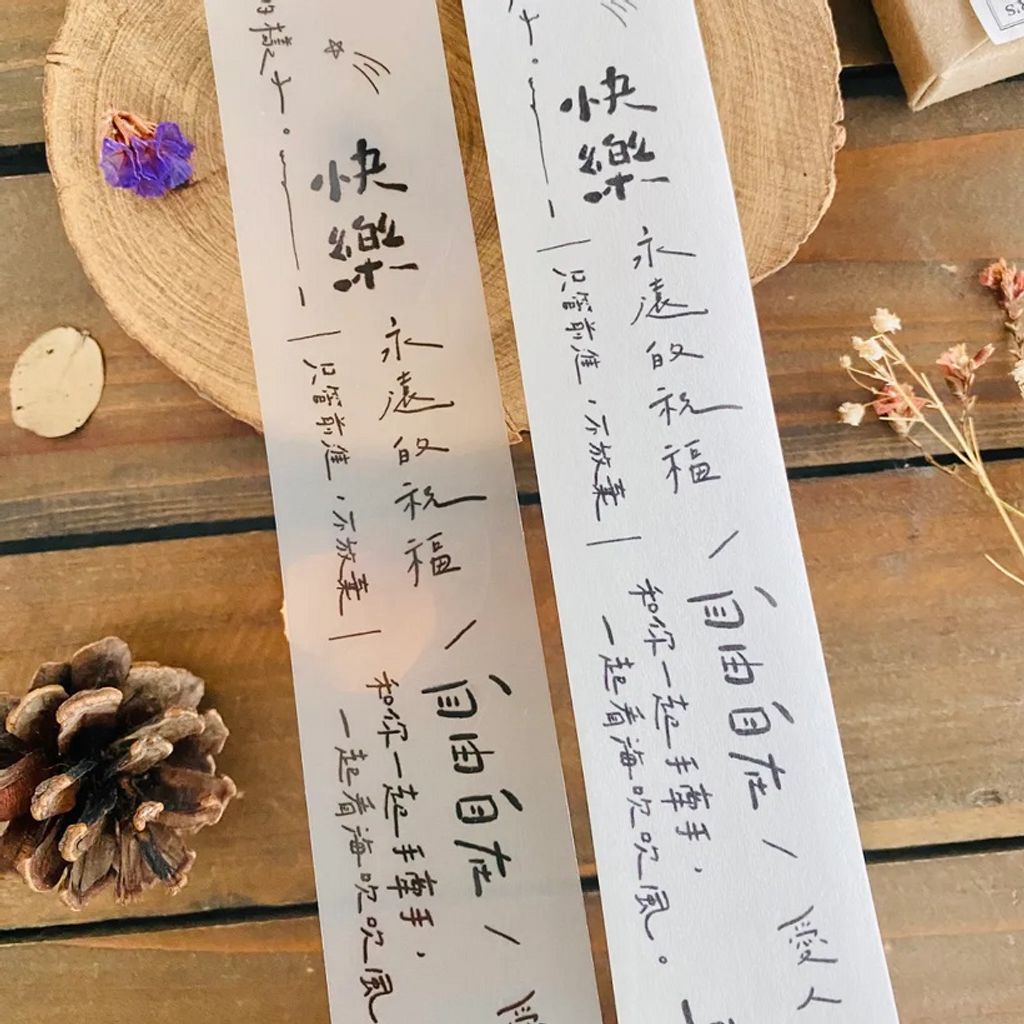 的樣子。
快樂
永遠的祝福
只管前進,不放棄
/自由自在/
和你一起手牽手,
一起看海吹吹風
子。
快樂
永遠的祝福
只管前進,不放棄
/自由自在/
和你一起手牽手,
一起看海吹吹風。
愛人